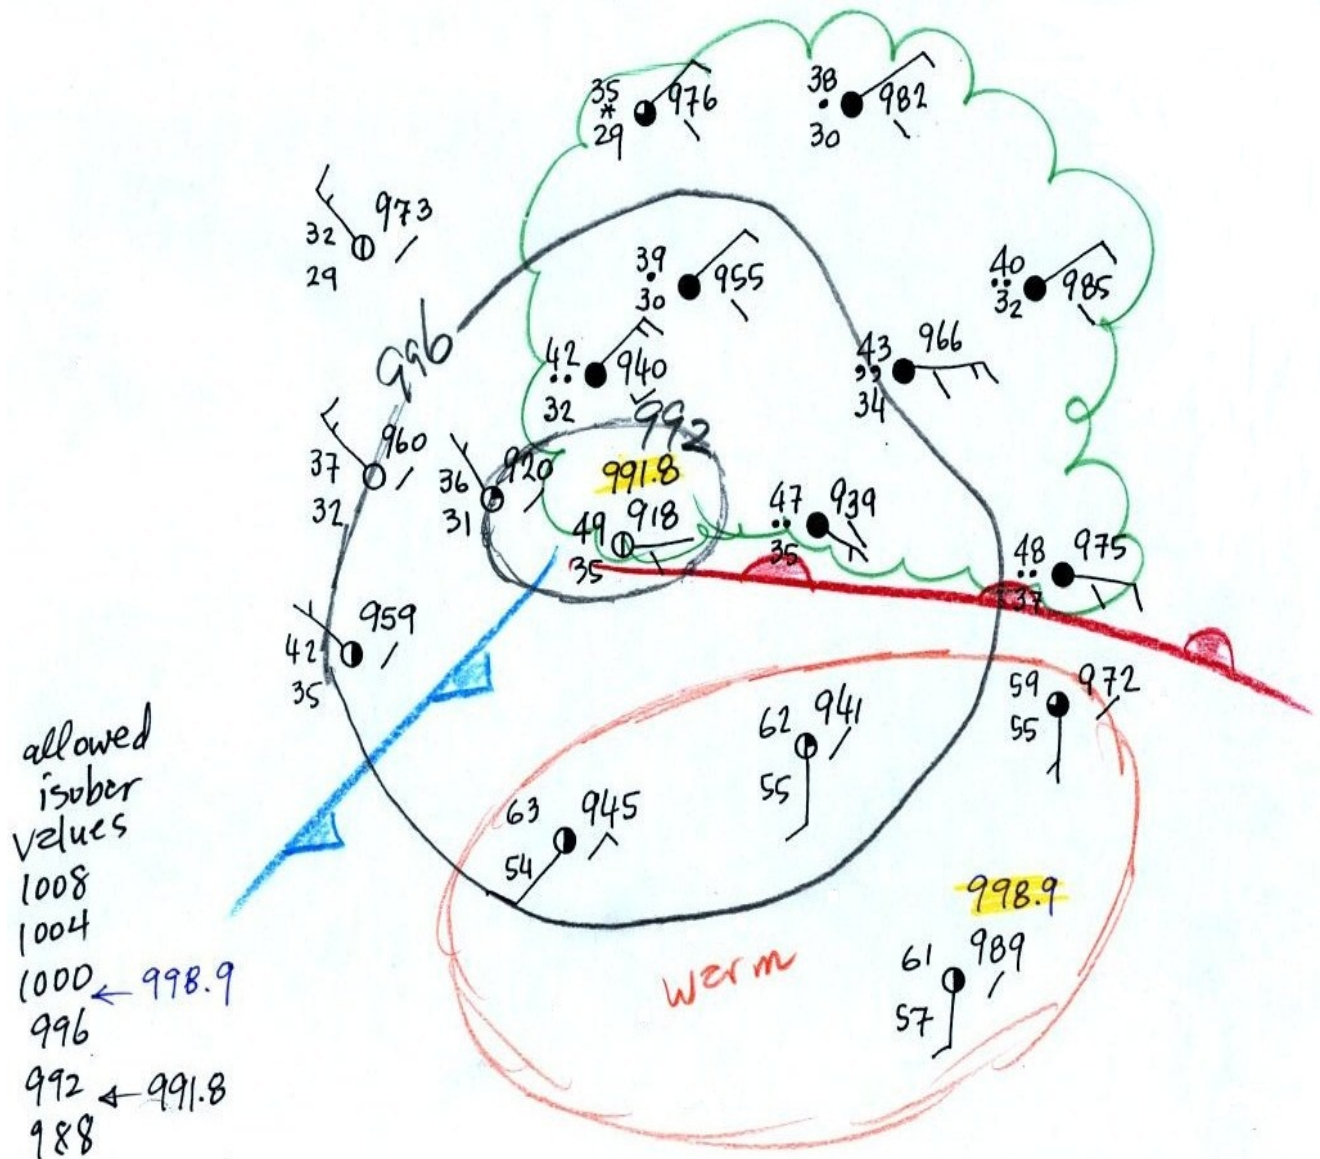 35
976
29
38
982
30
973
32
29
39
955
30
40
985
32
42
940
32
43
966
34
996
992
37
960
32
36
920
31
991.8
49
918
35
47
939
35
48
975
37
42
959
35
59
972
55
62
941
55
63
945
54
998.9
61
989
57
warm
allowed
isobar
values
1008
1004
1000 ← 998.9
996
992 ← 991.8
988